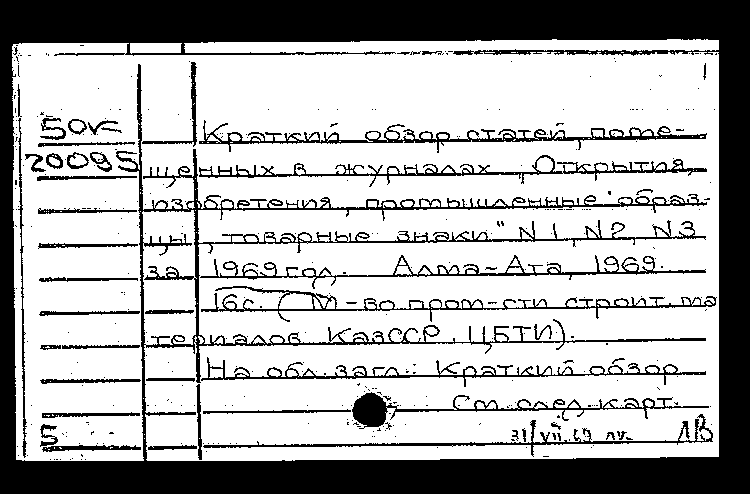 50к Краткий обзор статей, поме-
20095 щенных в журналах „Открытия,
изобретения, промышленные образ-
цы, товарные знаки" N1, N2, N3
за 1969 год. Алма-Ата, 1969.
16с. (М-во пром-сти строит. ма
териалов КазССР. ЦБТИ).
На обл. загл.: Краткий обзор
См. след. карт.
5 31/VII.69